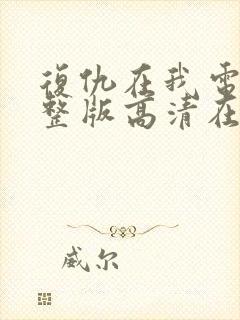 復仇在我電
整版高清在
威尔